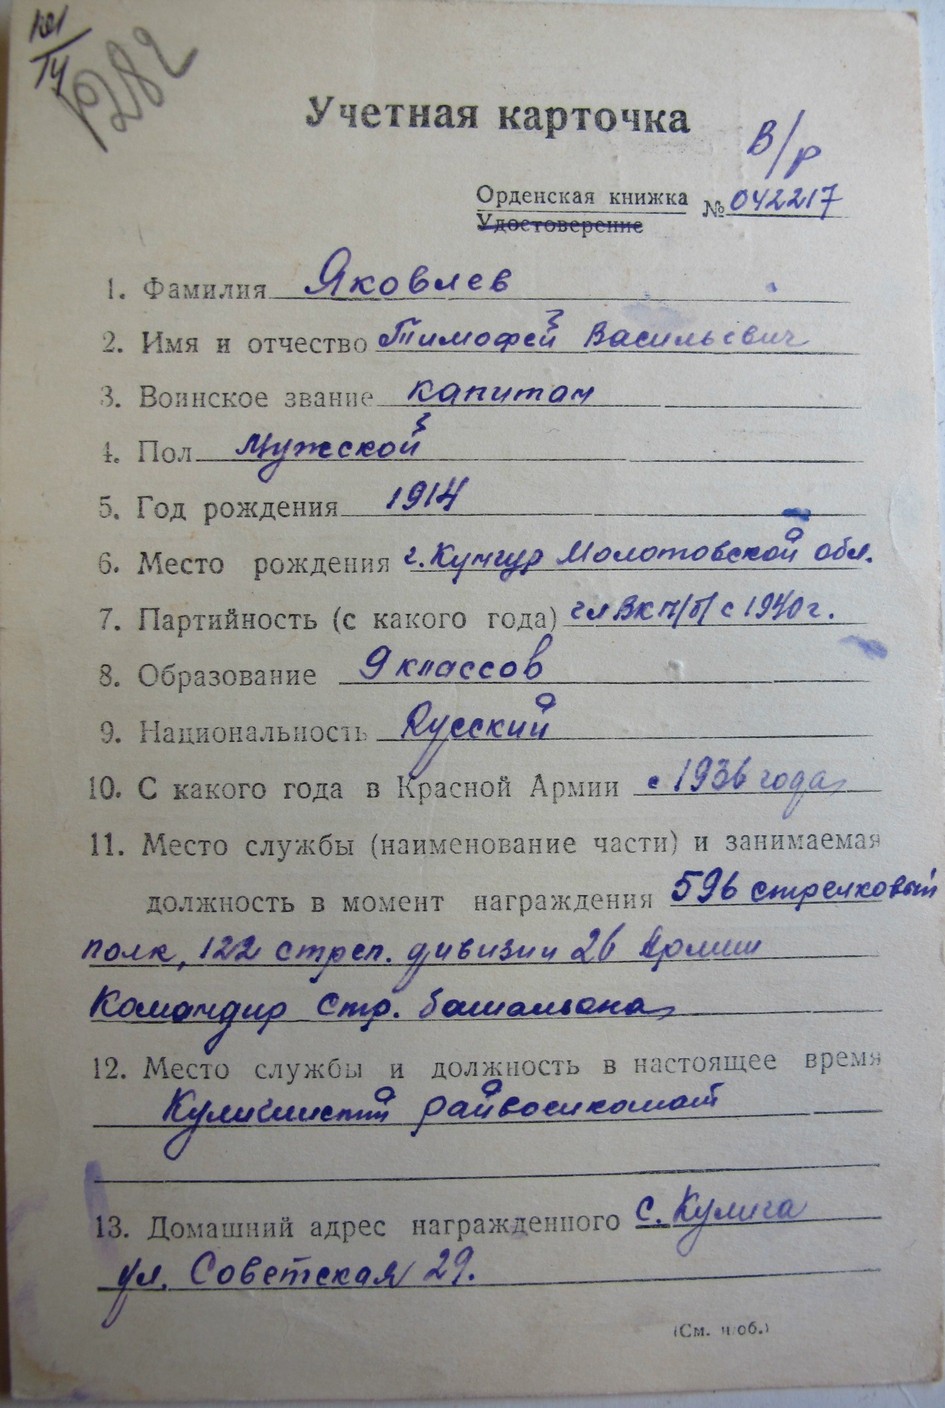 Учетная карточка
В/р
Орденская книжка № 042217
Удостоверение
1. Фамилия Яковлев
2. Имя и отчество Тимофей Васильевич
3. Воинское звание капитан
4. Пол Мужской
5. Год рождения 1914
6. Место рождения г. Кунгур Молотовской обл.
7. Партийность (с какого года) чл ВКП/б/ с 1940 г.
8. Образование 9 классов
9. Национальность Русский
10. С какого года в Красной Армии с 1936 года
11. Место службы (наименование части) и занимаемая
должность в момент награждения 596 стрелковый
полк, 122 стрел. дивизии 26 Армии
Командир Стр. батальона
12. Место службы и должность в настоящее время
райвоенкомат
13. Домашний адрес награжденного с. Кулига
ул. Советская 29.
(См. н/об.)